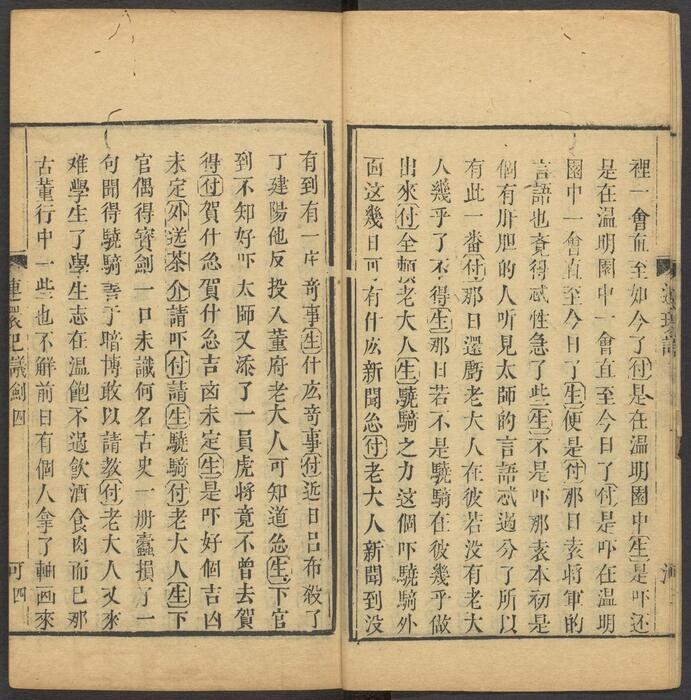 裡一會直至如今了付是在温明園中生是吓还
是在温明園中一會直至今日了付是吓在温明
園中一會直至今日了生便是付那日袁將軍的
言語也竟得忒性急了些生不是吓那袁本初是
個有肝胆的人听見太師的言語忒過分了所以
有此一番付那日還虧老大人在彼若没有老大
人幾乎了不得生那日若不是驍騎在彼幾乎做
出來付全頼老大人生驍騎之力这個吓驍騎外
面这幾日可有什庅新聞怹付老大人新聞到没
有到有一庄奇事生什庅奇事付近日吕布殺了
丁建陽他反投入董府老大人可知道怹生下官
到不知好吓太师又添了一員虎將竟不曾去賀
得付賀什怹賀什怹吉凶未定生是吓好個吉凶
未定外送茶介請吓付請生驍騎付老大人生下
官偶得寳劍一口未識何名古史一册蠹損了一
句聞得驍騎善于暗博敢以請教付老大人又來
难學生了學生志在温飽不過飲酒食肉而已那
古董行中一些也不觧前日有個人拿了軸画來
連環記議劍四
可四